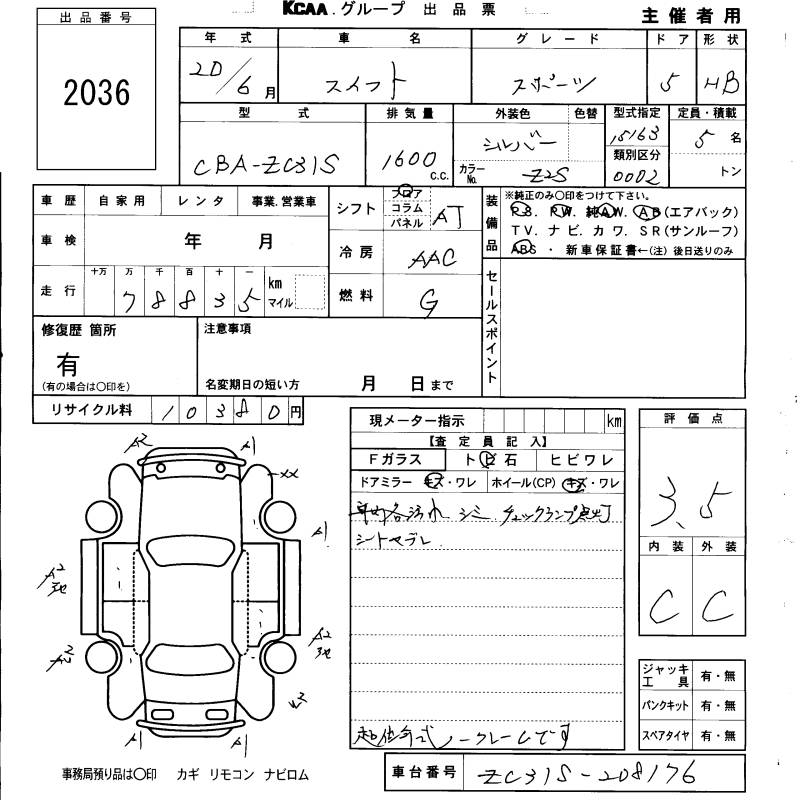 KCAA.グループ 出品票
主催者用
出品番号
2036
年式 車名 グレード ドア 形状
20/6月 スイフト スポーツ 5 HB
型式 排気量 外装色 色替 型式指定 定員・積載
CBA-ZC31S 1600 C.C. シルバー 15163 5名
カラーNo. Z2S 類別区分 0002 トン
車歴 自家用 レンタ 事業.営業車
車検 年 月
走行 十万 万 千 百 十 一 km マイル
78835
シフト フロア コラム パネル AT
冷房 AAC
燃料 G
装備品 ※純正のみ○印をつけて下さい。
P.S. P.W. 純A.W. A.B(エアバック)
TV. ナビ. カワ. SR(サンルーフ)
ABS ・ 新車保証書←(注)後日送りのみ
セールスポイント
修復歴 箇所
有
(有の場合は○印を)
注意事項
名変期日の短い方 月 日まで
リサイクル料 10380円
現メーター指示 km
【査定員記入】
Fガラス トビ石 ヒビワレ
ドアミラー キズ・ワレ ホイール(CP) キズ・ワレ
車内各汚れ シミ チェックランプ点灯
シートヤブレ
低年式ノークレームです
評価点
3.5
内装 外装
C C
A2 A1
XX
A1
A2
A2
A2
A1 A1
ジャッキ工具 有・無
パンクキット 有・無
スペアタイヤ 有・無
事務局預り品は○印 カギ リモコン ナビロム
車台番号 ZC31S-208176